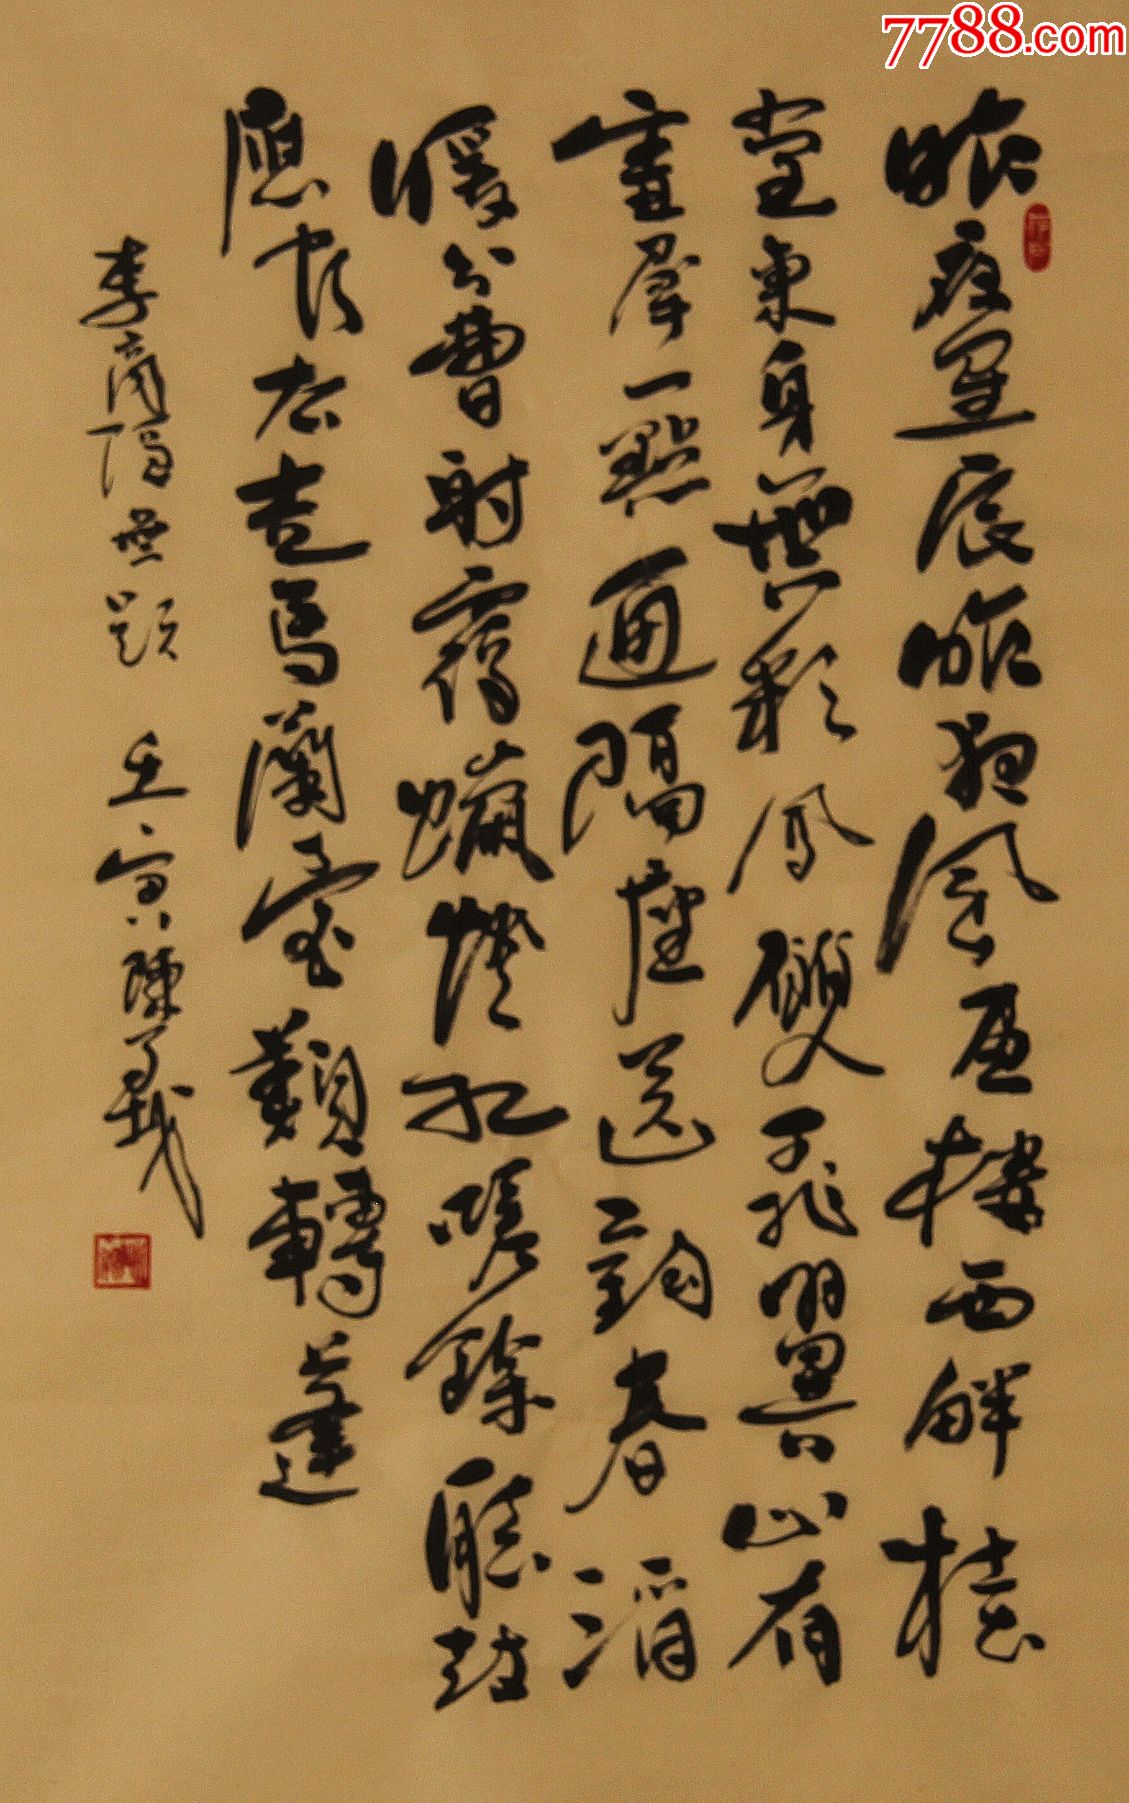 7788.com
昨夜星辰昨夜風画樓西畔桂
堂東身無彩鳳雙飛翼心有
靈犀一點通隔座送鈎春酒
暖分曹射覆蠟燈紅嗟餘聽鼓
應官去走馬蘭臺類轉蓬
李商隐無題 壬寅陳